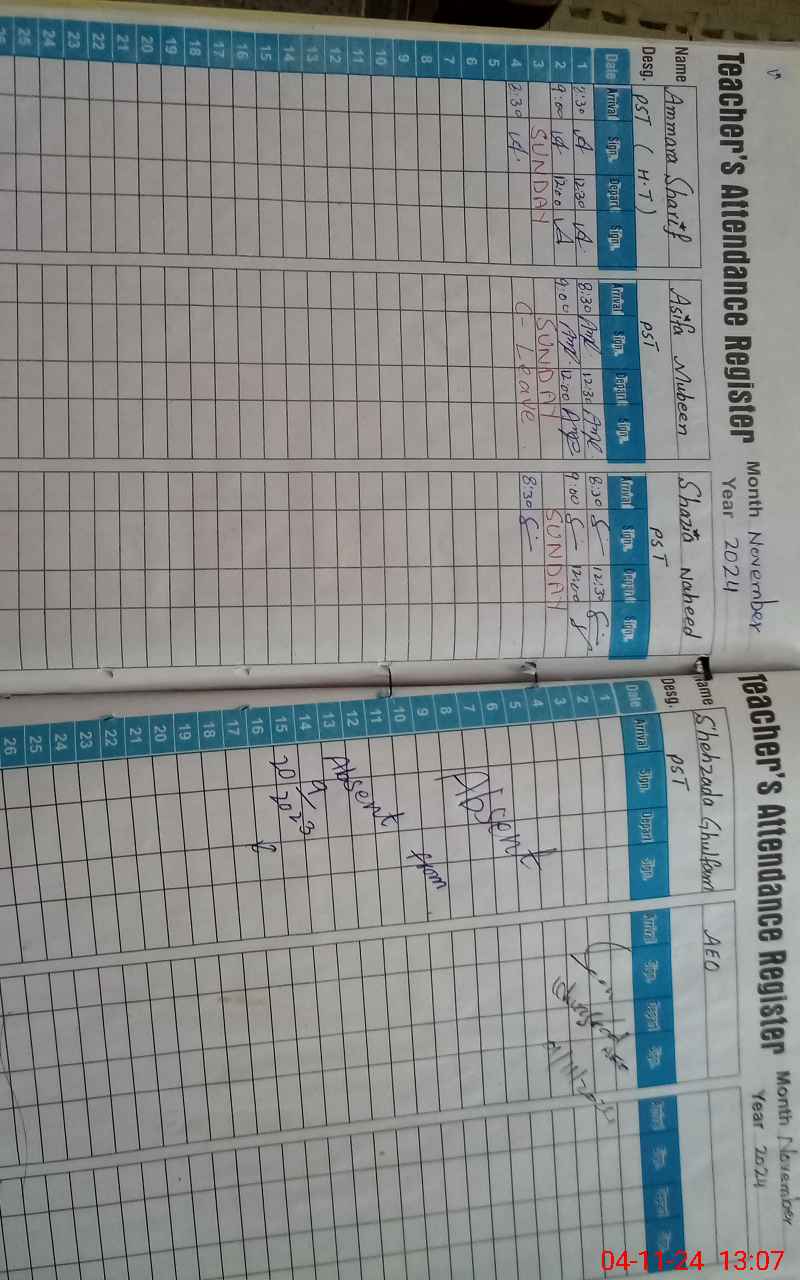 Teacher's Attendance Register Month November
Year 2024
Name Ammara Sharif Asifa Mubeen Shazia Naheed
Desg. PST (H.T) PST PST
Date Arrival Sign. Depart Sign. Arrival Sign. Depart Sign. Arrival Sign. Depart Sign.
1 8:30 12:30 8:30 12:30 8:30 12:30
2 9:00 12:00 9:00 12:00 9:00 12:00
3 SUNDAY SUNDAY SUNDAY
4 8:30 C-Leave 8:30
5
6
7
8
9
10
11
12
13
14
15
16
17
18
19
20
21
22
23
24
25
26
Teacher's Attendance Register Month November
Year 2024
Name Shehzada Ghulfam AEO
Desg. PST
Date Arrival Sign. Depart Sign. Arrival Sign. Depart Sign. Arrival Sign. Depart Sign.
1
2
3
4
5
6
7 Absent
8
9 from
10
11
12 Absent
13
14 9/2023
15 20
16
17
18
19
20
21
22
23
24
25
26
04-11-24 13:07